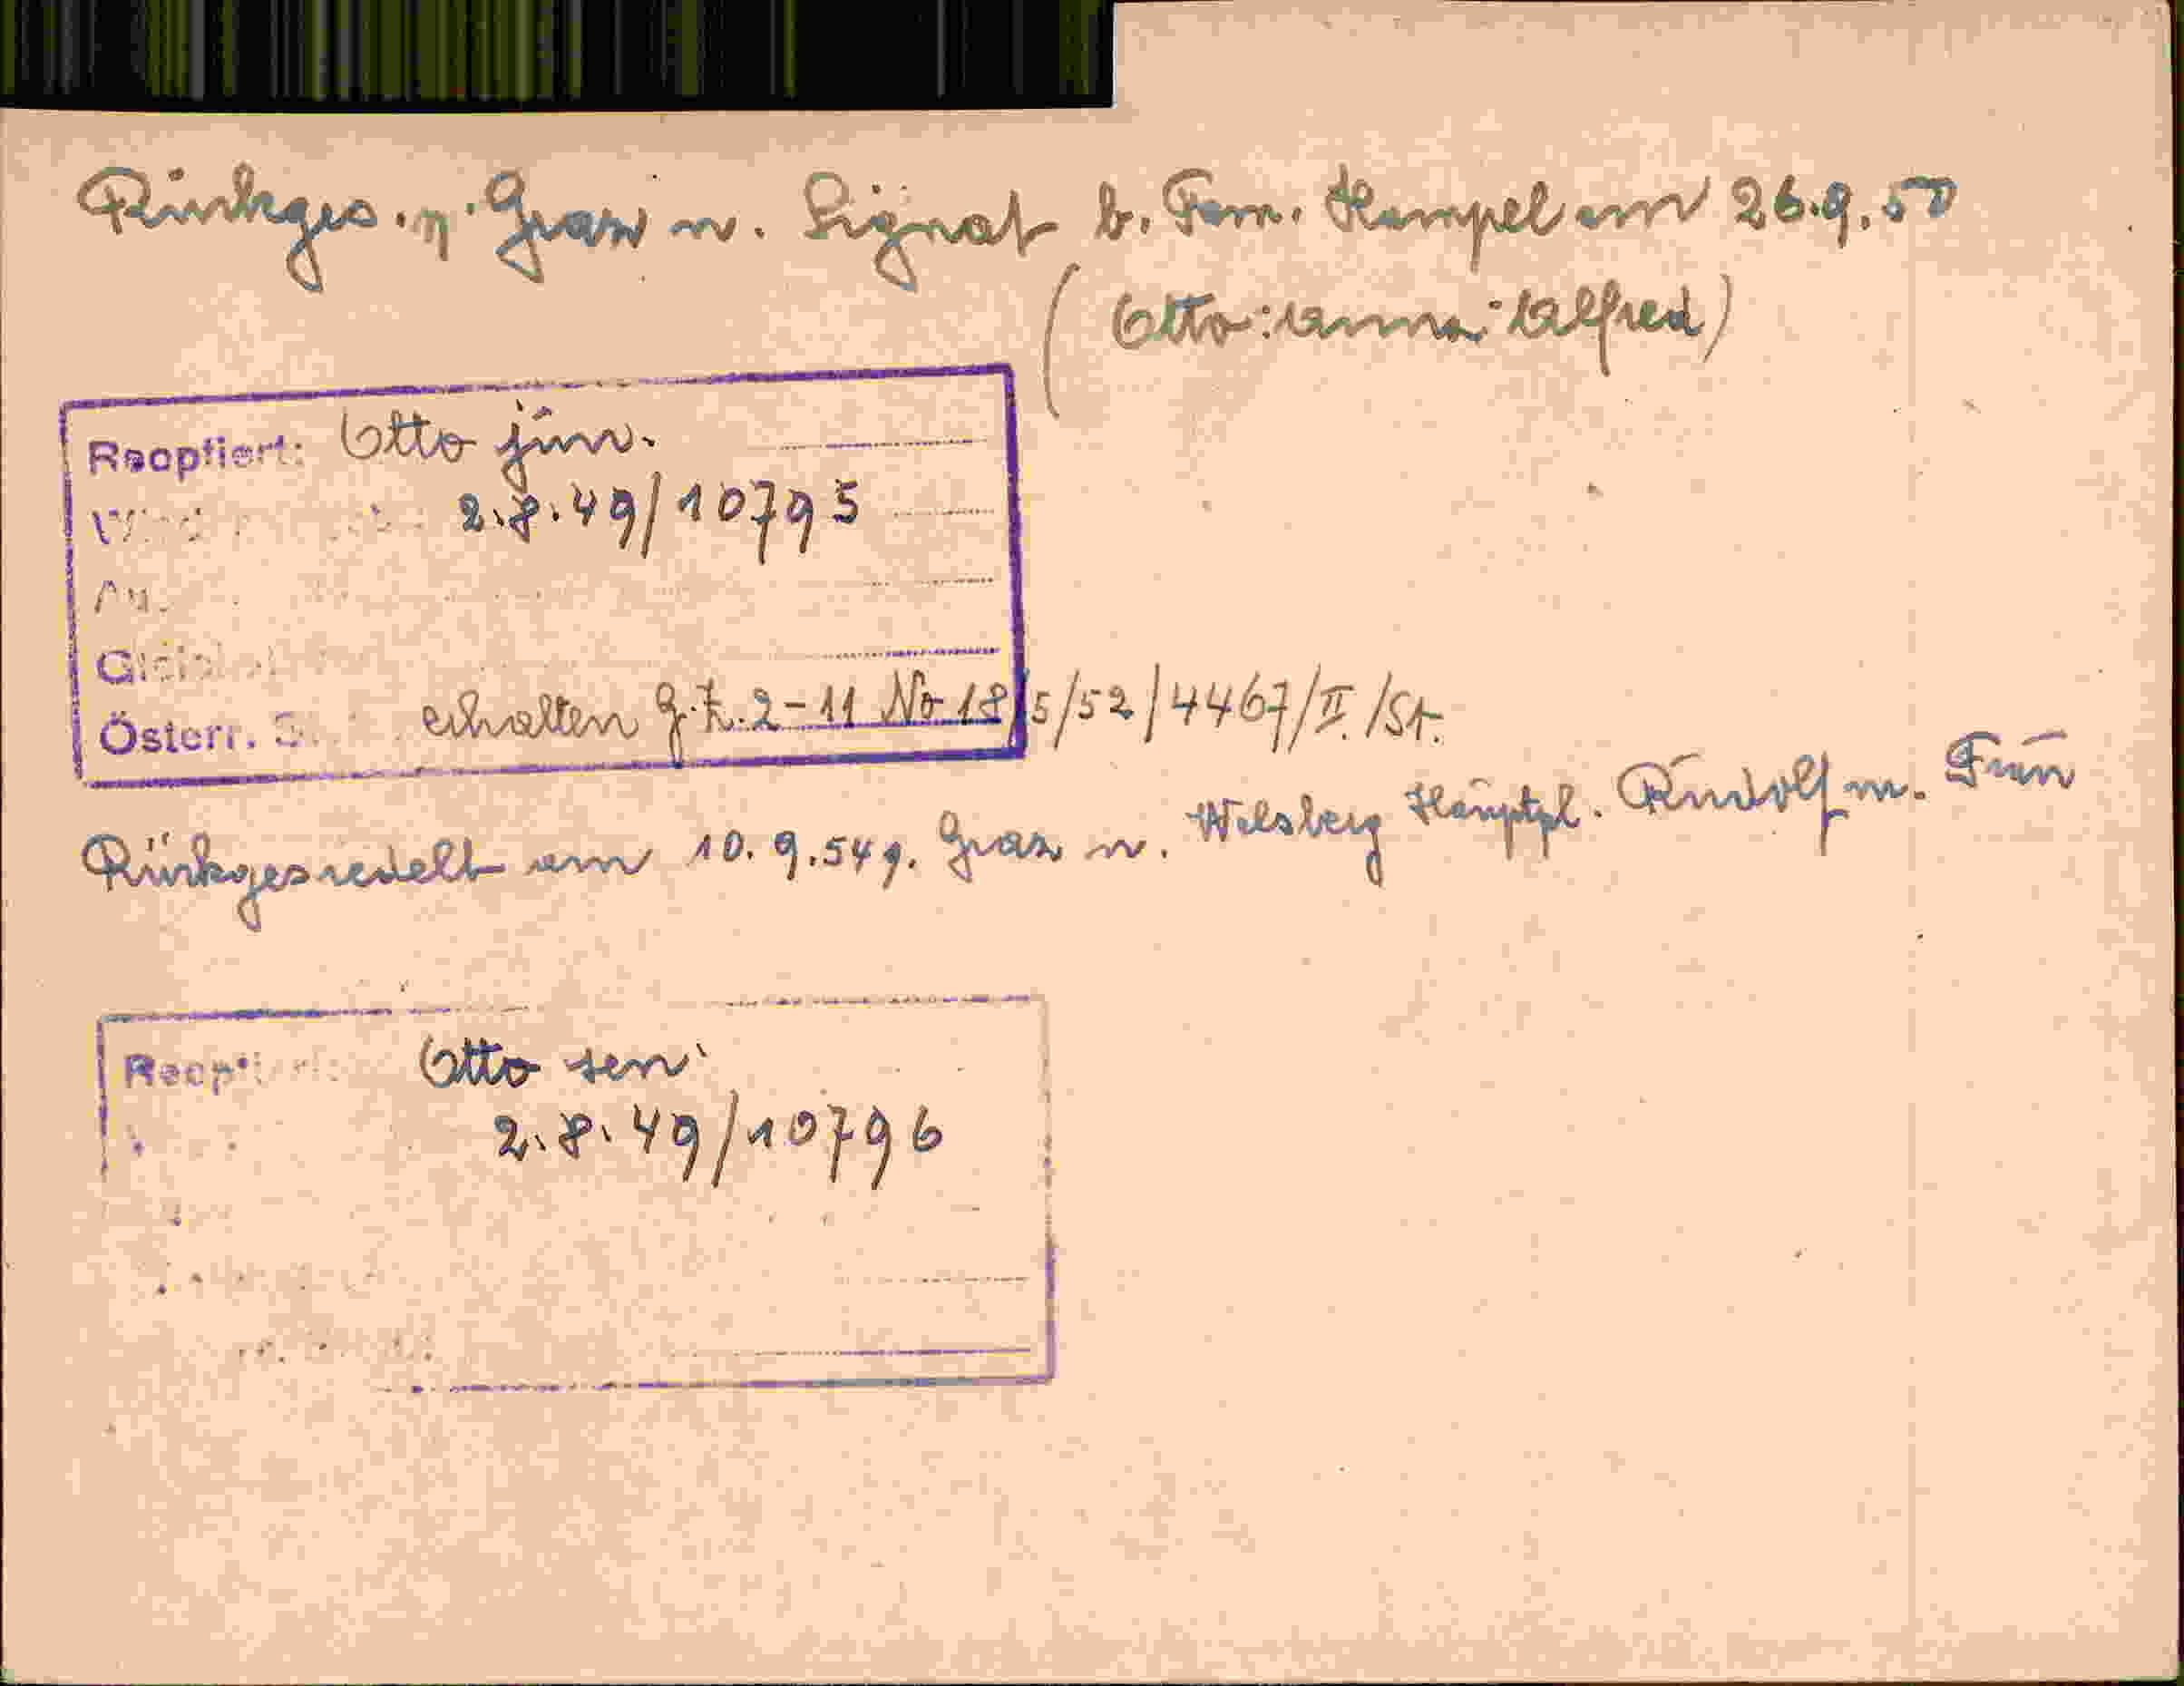 Rückges. v. Graz n. Signat b. Fam. Hempel am 26.9.50
(Otto: Anna: Alfred)
Reoptiert: Otto jun.
2.8.49/10795
Österr. S erhalten G.Z. 2-11 No 18/5/52/4467/II./St.
Rückgesiedelt am 10.9.54 v. Graz n. Welsberg Hauptpl. Rudolf m. Frau
Reoptiert: Otto sen.
2.8.49/10796